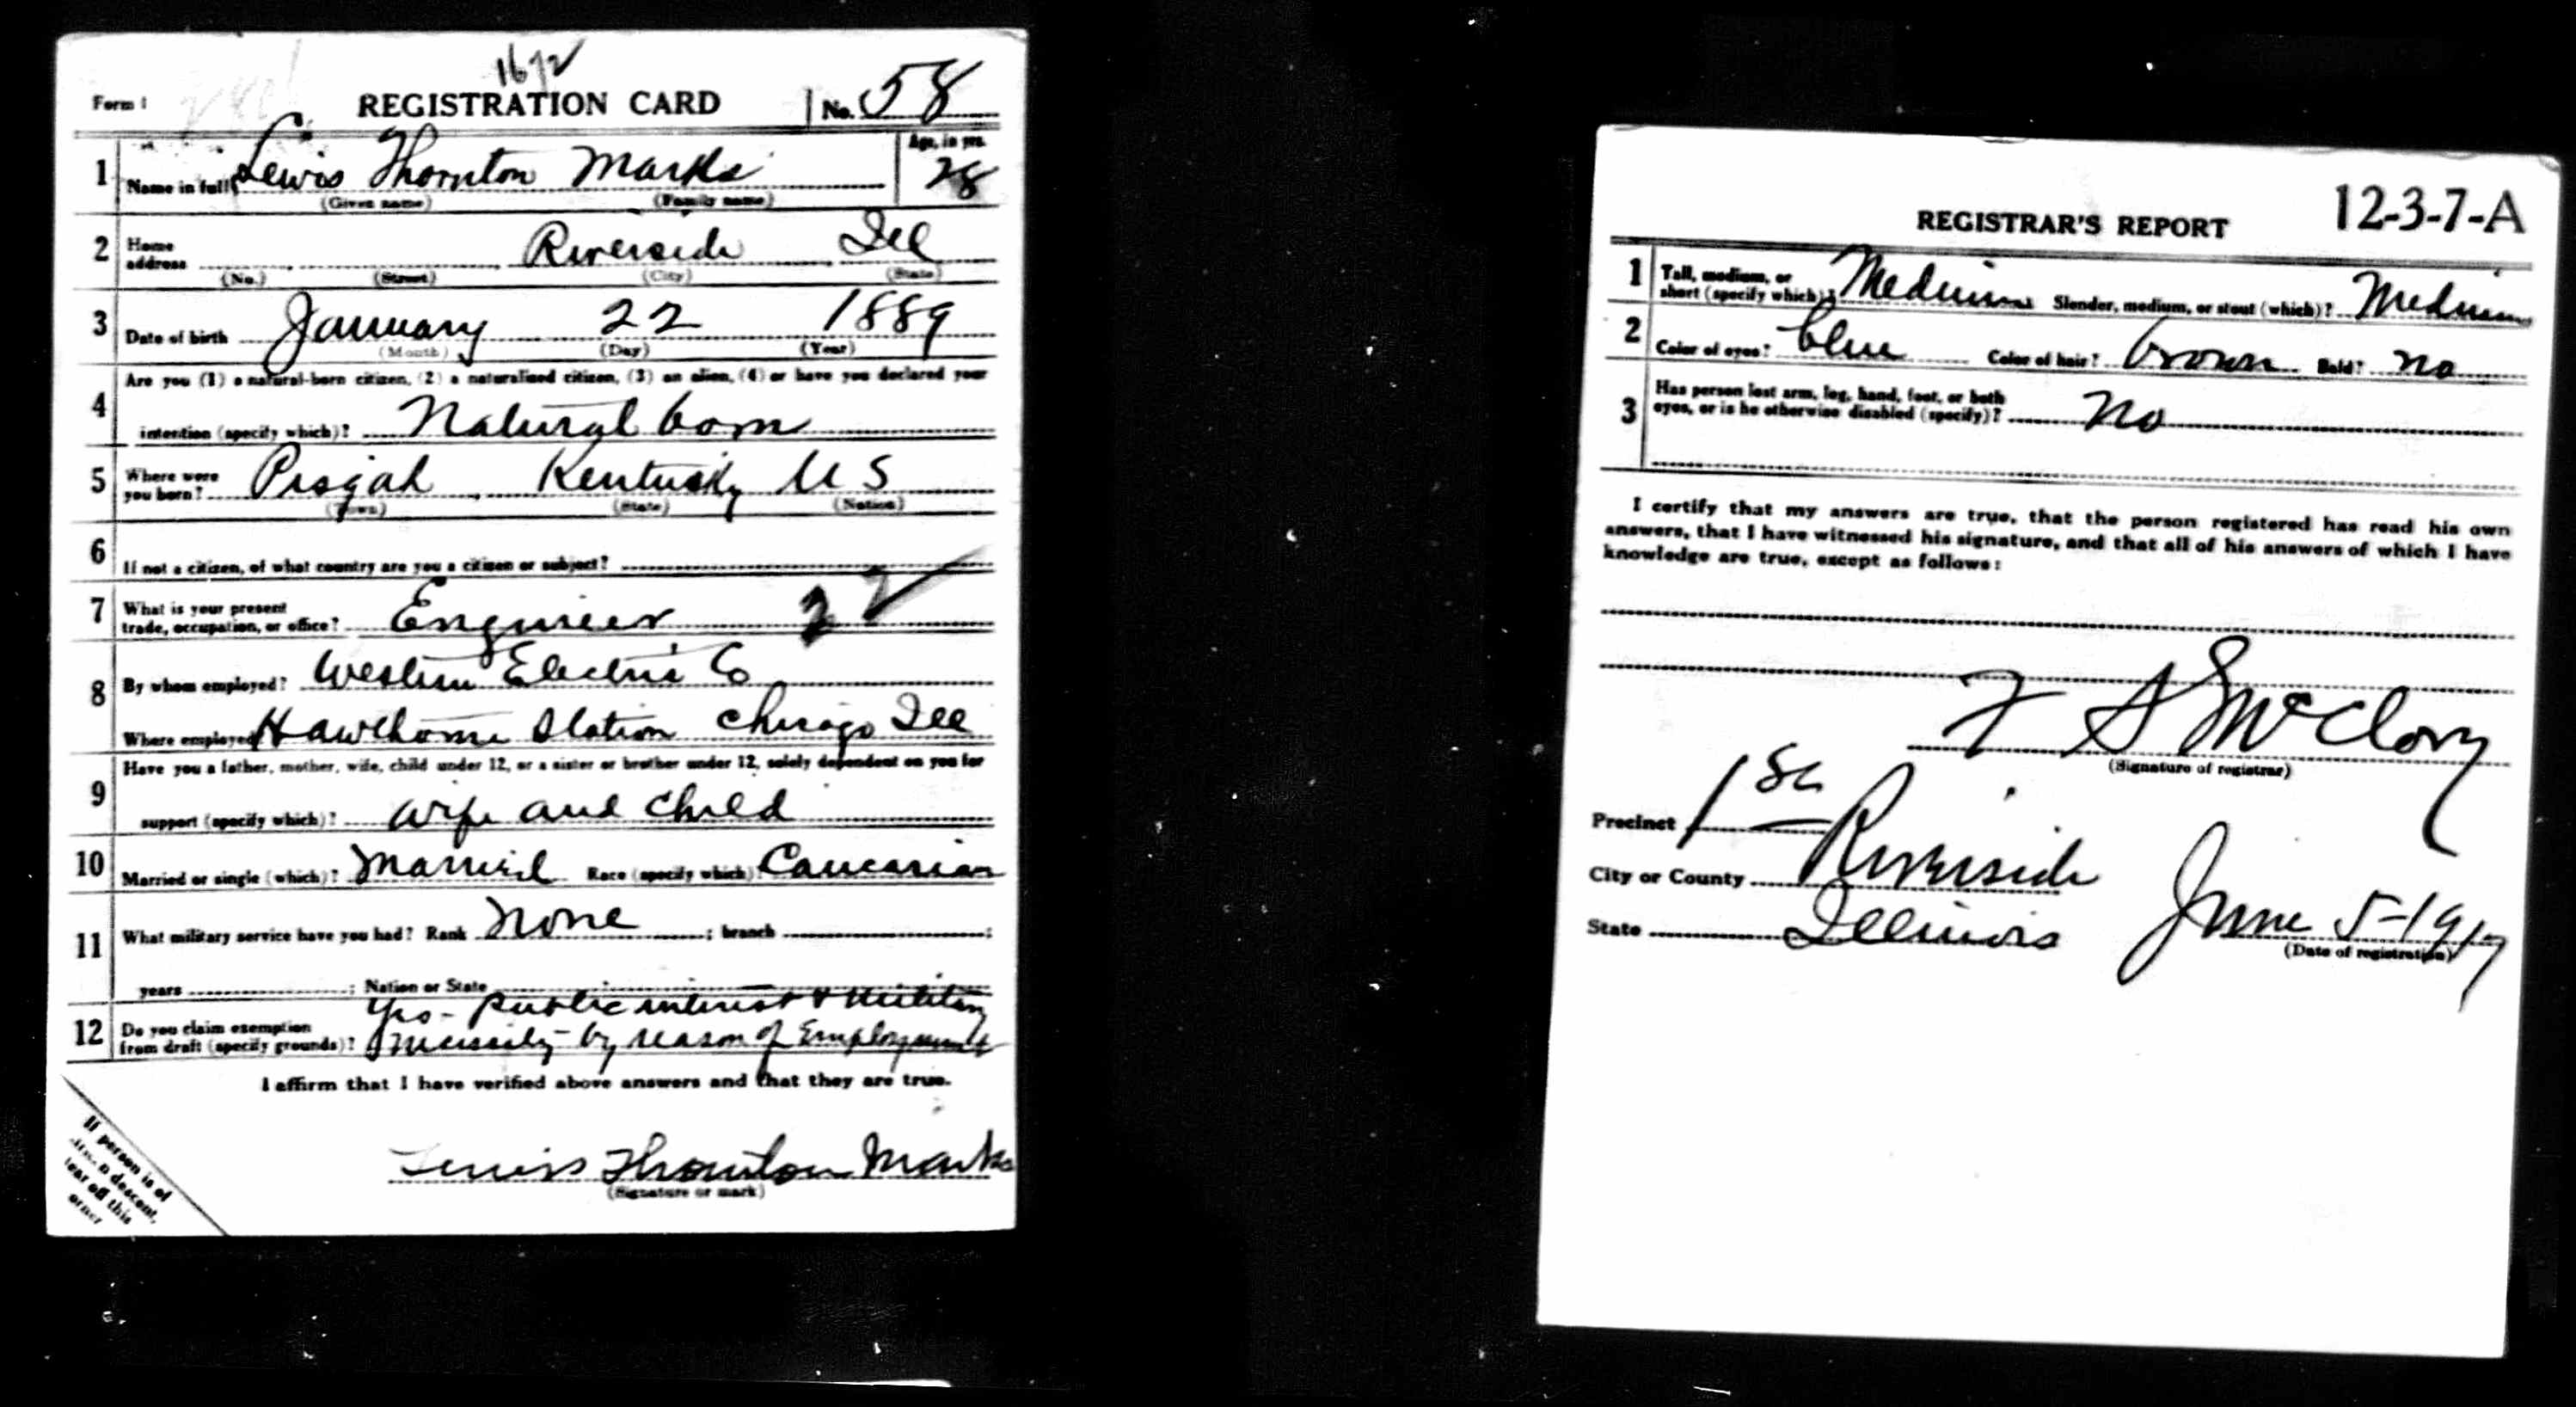 1672
Form 1 REGISTRATION CARD No. 58
1 Name in full Lewis Thornton Marks Age, in yrs. 28
(Given name) (Family name)
2 Home address Riverside Ill
(No.) (Street) (City) (State)
3 Date of birth January 22 1889
(Month) (Day) (Year)
4 Are you (1) a natural-born citizen, (2) a naturalized citizen, (3) an alien, (4) or have you declared your
intention (specify which)? Natural born
5 Where were you born? Pisgah Kentucky U S
(Town) (State) (Nation)
6 If not a citizen, of what country are you a citizen or subject?
7 What is your present trade, occupation, or office? Engineer 22
8 By whom employed? Western Electric Co
Where employed Hawthorne Station Chicago Ill
9 Have you a father, mother, wife, child under 12, or a sister or brother under 12, solely dependent on you for
support (specify which)? wife and child
10 Married or single (which)? Married Race (specify which)? Caucasian
11 What military service have you had? Rank None ; branch ;
years ; Nation or State
Yes - Public interest & Military
12 Do you claim exemption from draft (specify grounds)? necessity - by reason of Employment
I affirm that I have verified above answers and that they are true.
Lewis Thornton Marks
(Signature or mark)
If person is of
descent,
tear off this
corner
REGISTRAR'S REPORT 12-3-7-A
1 Tall, medium, or short (specify which)? Medium Slender, medium, or stout (which)? Medium
2 Color of eyes? blue Color of hair? brown Bald? no
3 Has person lost arm, leg, hand, foot, or both
eyes, or is he otherwise disabled (specify)? No
I certify that my answers are true, that the person registered has read his own
answers, that I have witnessed his signature, and that all of his answers of which I have
knowledge are true, except as follows:
McClory
(Signature of registrar)
Precinct 1st
City or County Riverside
State Illinois June 5-1917
(Date of registration)